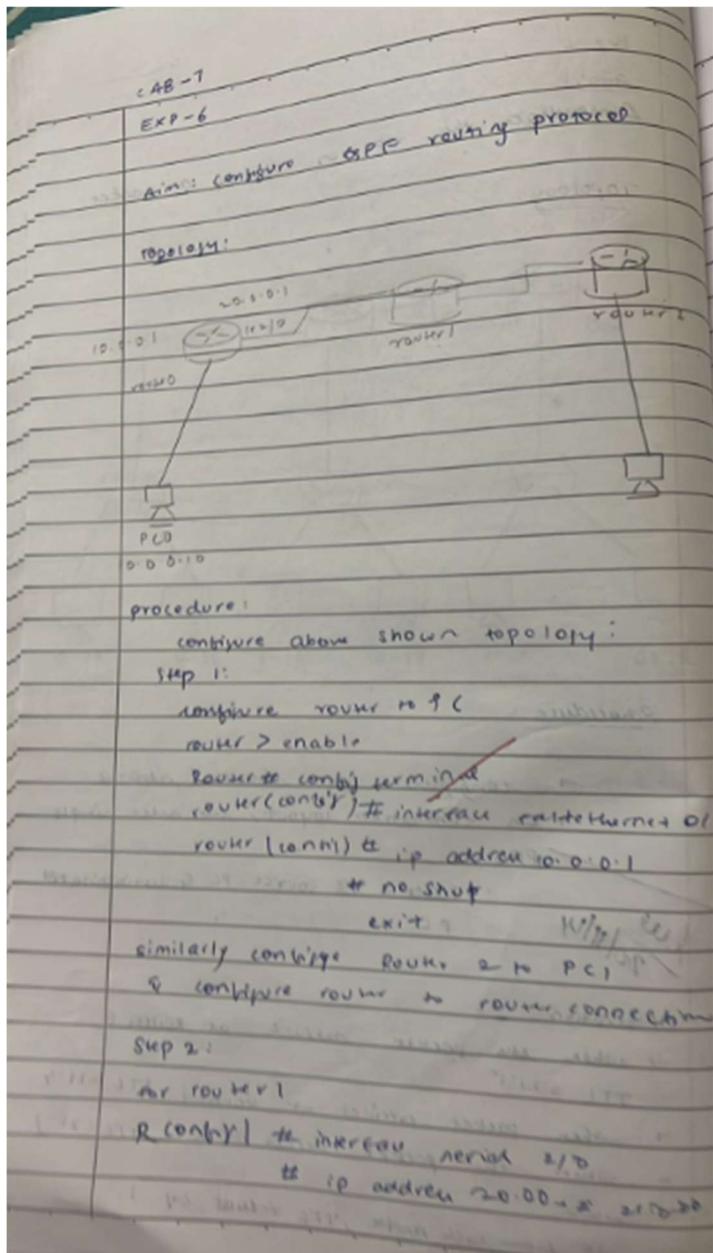 LAB-7
EXP-6
Aim: configure OSPF routing protocol
Topology:
20.0.0.1
10.0.0.1
router1
router2
PC0
0.0.0.10
procedure:
configure above shown topology:
Step 1:
configure router to PC
router > enable
Router # config terminal
router(config) # interface fastethernet 0/
router (config) # ip address 10.0.0.1
# no shut
exit
similarly configure Router 2 to PC1
& configure router to router connection
Step 2:
for router 1
R config) # interface serial 2/0
# ip address 20.00